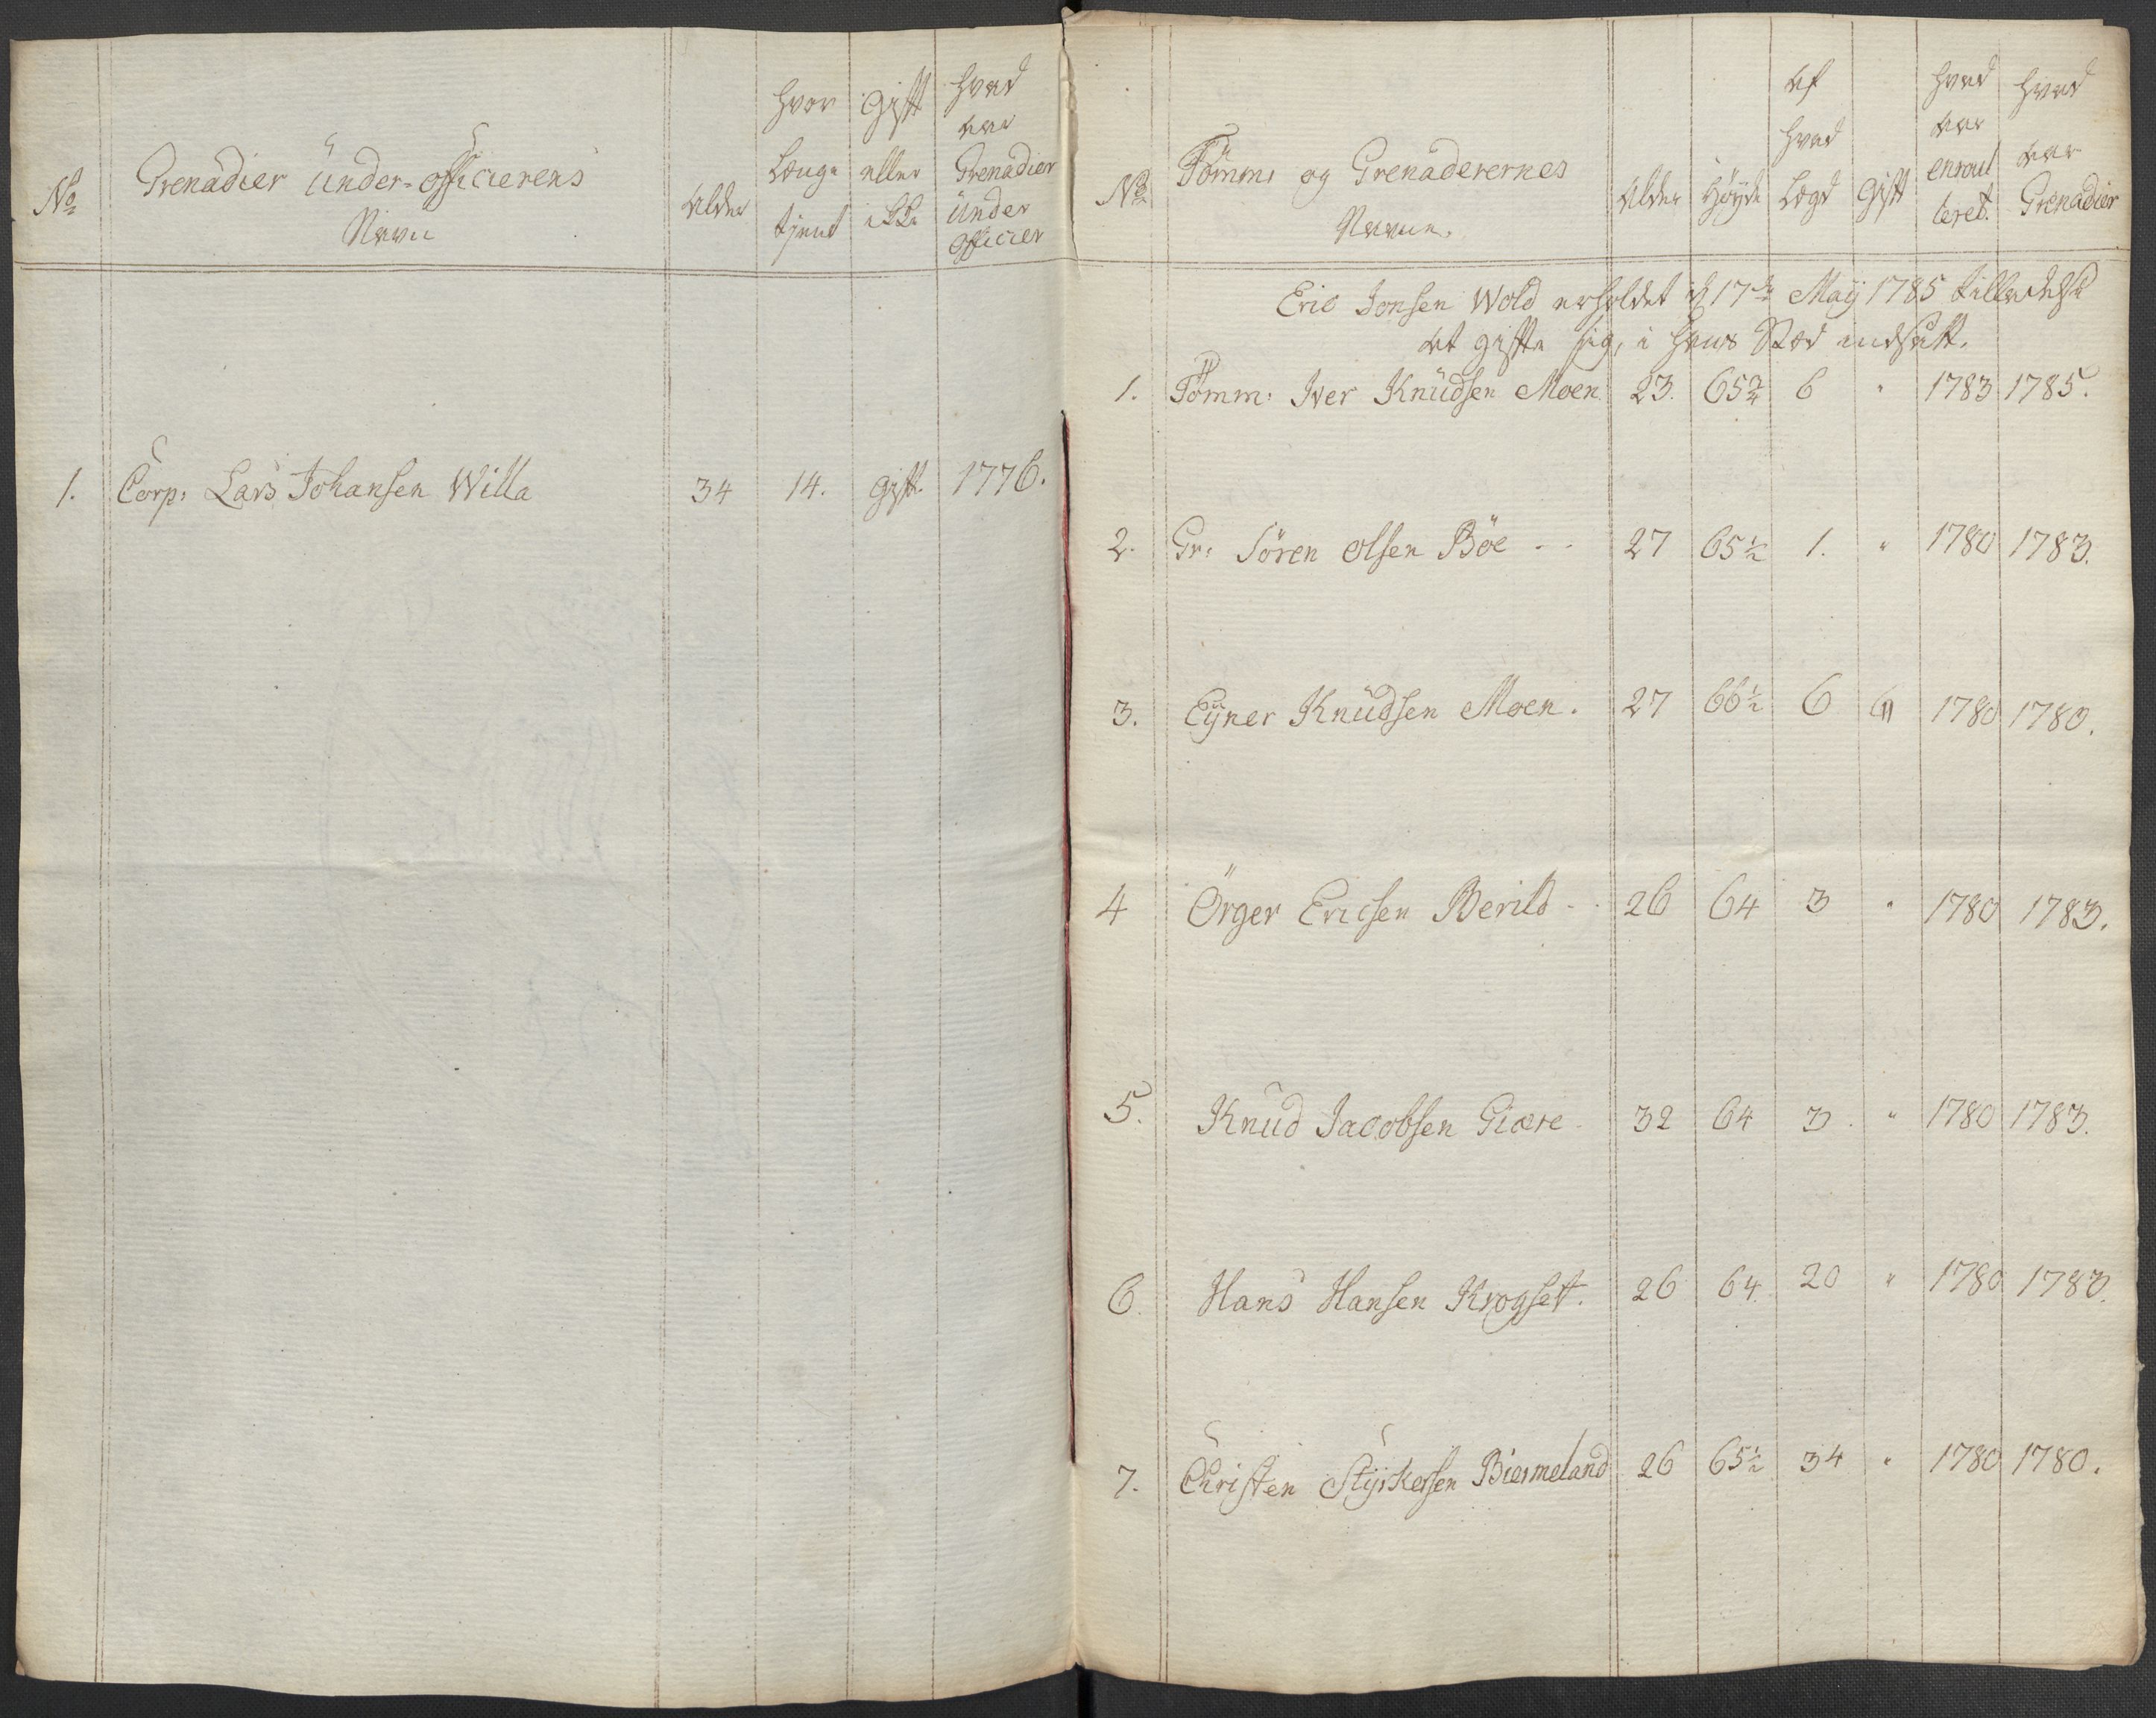 No
Grenadier Ünder-officierens
Navn
Alder
hvor
Længe
tjent
Gift
eller
ikke
hvad
aar
Grenadier
Ünder
officier
1. Corp: Lars Johansen Willa 34 14. gift. 1776.
No
Tömm: og Grenaderernes
Navne.
Alder
Höyde
Af
hvad
Lægd
Gift
hvad
aar
enroul
leret.
hvad
aar
Grenadier
Eric Jonsen Wold erholdet d 17de Maij 1785 tilladelse
at gifte sig, i hans Stæd indsatt.
1. Tömm: Iver Knüdsen Moen 23. 65 6 " 1783 1785.
2. Gr: Sören olsen Böe - - 27 65½ 1. " 1780 1783.
3. Eÿner Knüdsen Moen. 27 66½ 6 G 1780 1780.
4 Örger Ericsen Berild - . 26 64 3 " 1780 1783.
5. Knüd Jacobsen Giære 32 64 3. " 1780 1783.
6. Hans Hansen Krogset. 26 64. 20 " 1780 1783.
7. Christen Stÿrkersen Biermeland 26 65½ 34 " 1780 1780.